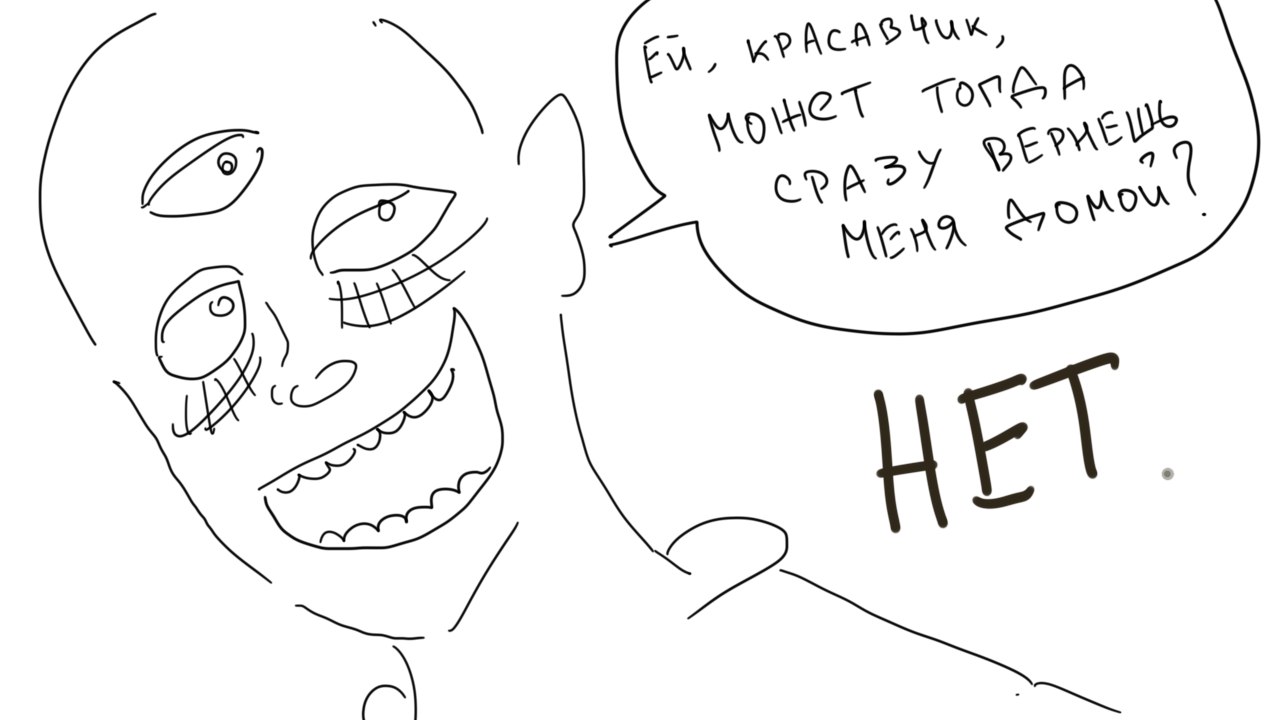 ЕЙ, КРАСАВЧИК,
МОЖЕТ ТОГДА
СРАЗУ ВЕРНЕШЬ
МЕНЯ ДОМОЙ?
НЕТ